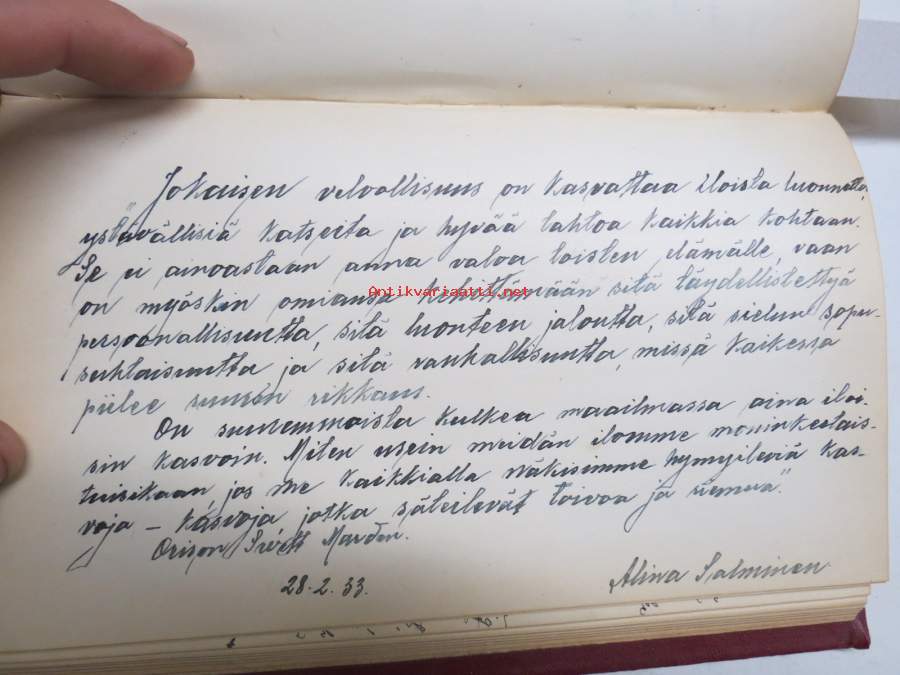 "Jokaisen velvollisuus on kasvattaa iloista luonnetta,
ystävällisiä katseita ja hyvää tahtoa kaikkia kohtaan.
Se ei ainoastaan anna valoa toisten elämälle, vaan
on myöskin omiansa kehittämään sitä täydellistettyä
persoonallisuutta, sitä luonteen jaloutta, sitä sielun sopu-
suhtaisuutta ja sitä rauhallisuutta, missä kaikessa
piilee suurin rikkaus.
On suuremmoista kulkea maailmassa aina iloi-
sin kasvoin. Miten usein meidän ilomme moninkertais-
tuisikaan jos me kaikkialla näkisimme hymyileviä kas-
voja – kasvoja jotka säteilevät toivoa ja riemua."
Orison Swett Marden.
28.2.33.
Alina Salminen
Antikvariaatti.net